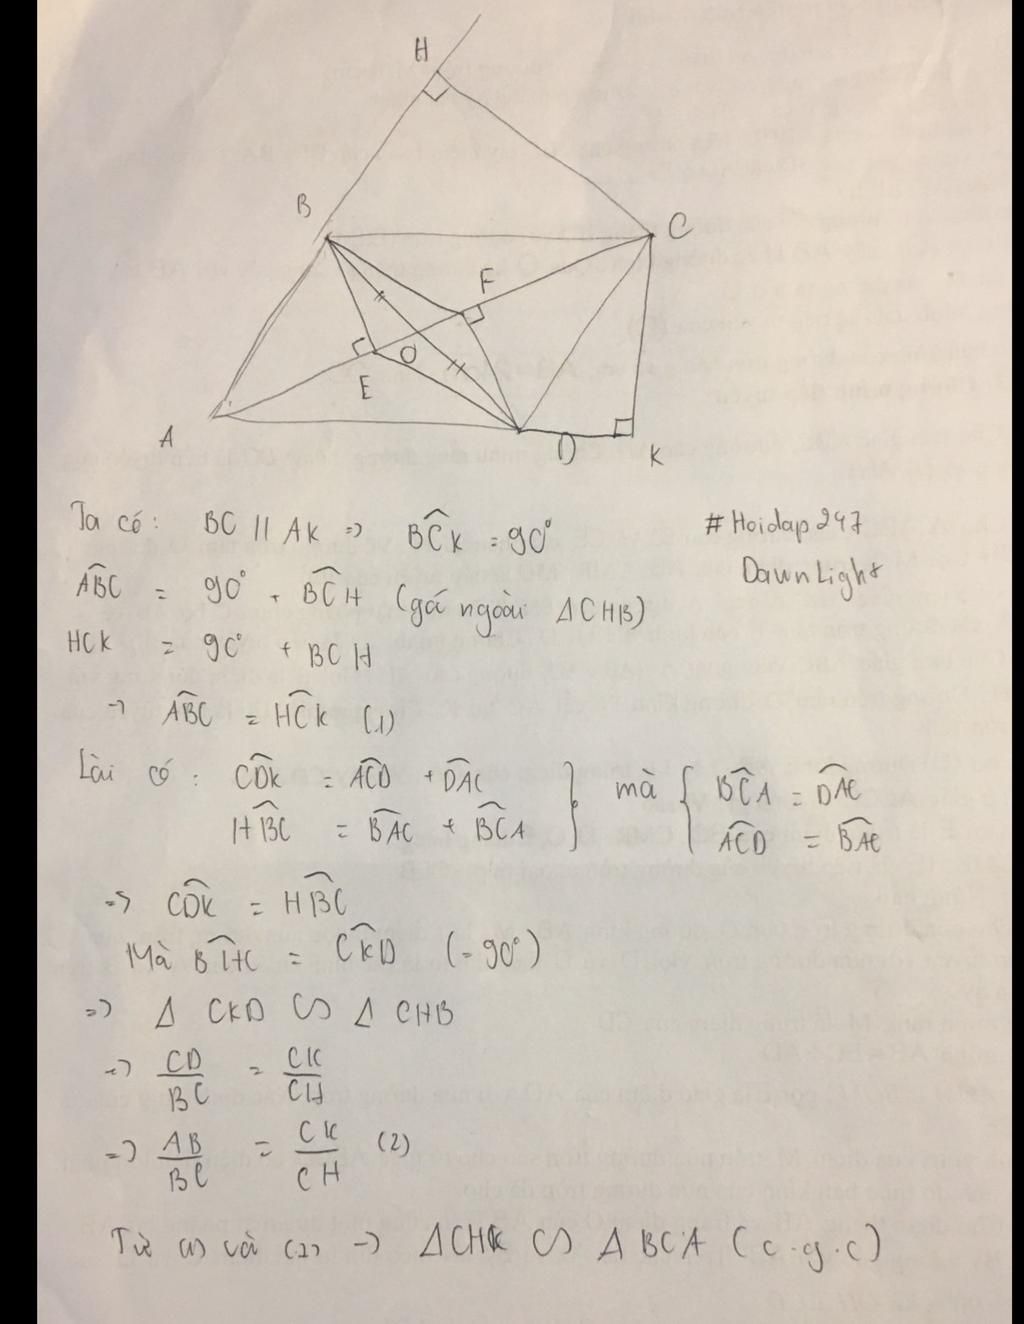 H
B
C
F
O
E
A
D
K
Ta có: BC // AK => B̂CK = 90°
#Hoidap247
DawnLight
ÂBC = 90° + B̂CH (gá ngoài ΔCHB)
HCK = 90° + BCH
=> ÂBC = ĤCK (1)
Lài có: ĈDK = ÂCD + D̂AC
ĤBC = B̂AC + B̂CA
} mà { B̂CA = D̂AC
ÂCD = B̂AC
=> ĈDK = ĤBC
Mà B̂HC = ĈKD (=90°)
=> Δ CKD ∽ Δ CHB
=> CD/BC = CK/CH
=> AB/BC = CK/CH (2)
Từ (1) và (2) => ΔCHK ∽ ΔBCA (c.g.c)